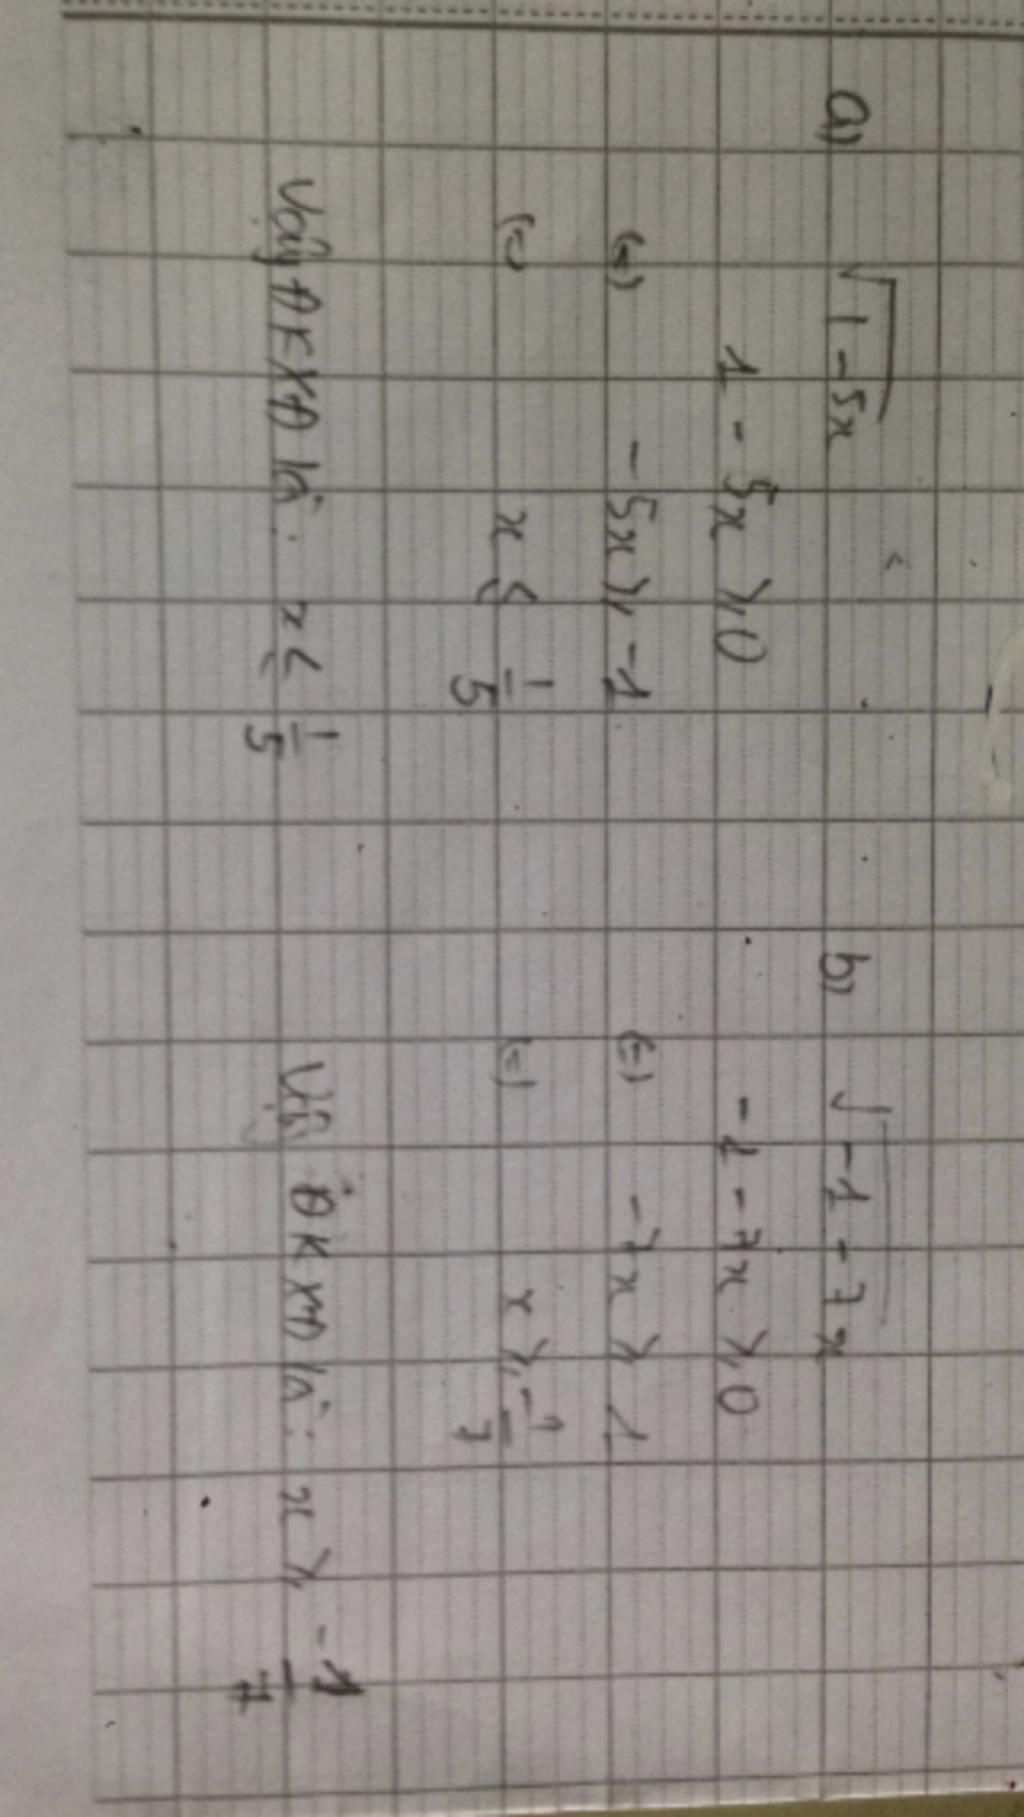 a) √1-5x
1 - 5x ⩾ 0
(=) -5x ⩾ -1
(=) x ⩽ 1/5
Vậy ĐKXĐ là: x ⩽ 1/5
b) √-1-7x
-1 - 7x ⩾ 0
(=) -7x ⩾ 1
(=) x ⩾ -1/7
Vậy ĐKXĐ là: x ⩾ -1/7